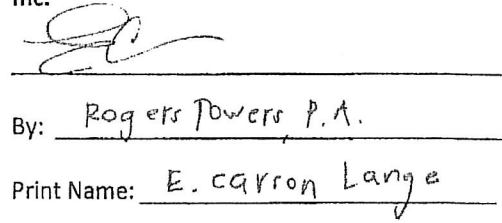 Inc.
By: Rogers Towers P.A.
Print Name: E. Carson Lange